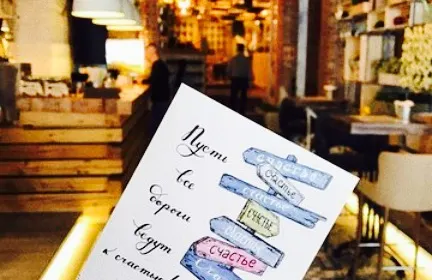 Пусть
все
дороги
ведут
к счастью
счастье
счастье
счастье
счастье
счастье
счастье